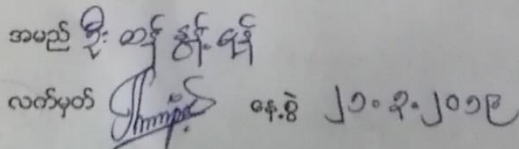 အမည် ဦး တန် နွန့် ရန်
လက်မှတ် နေ့စွဲ ၂၁.၃.၂၀၁၉